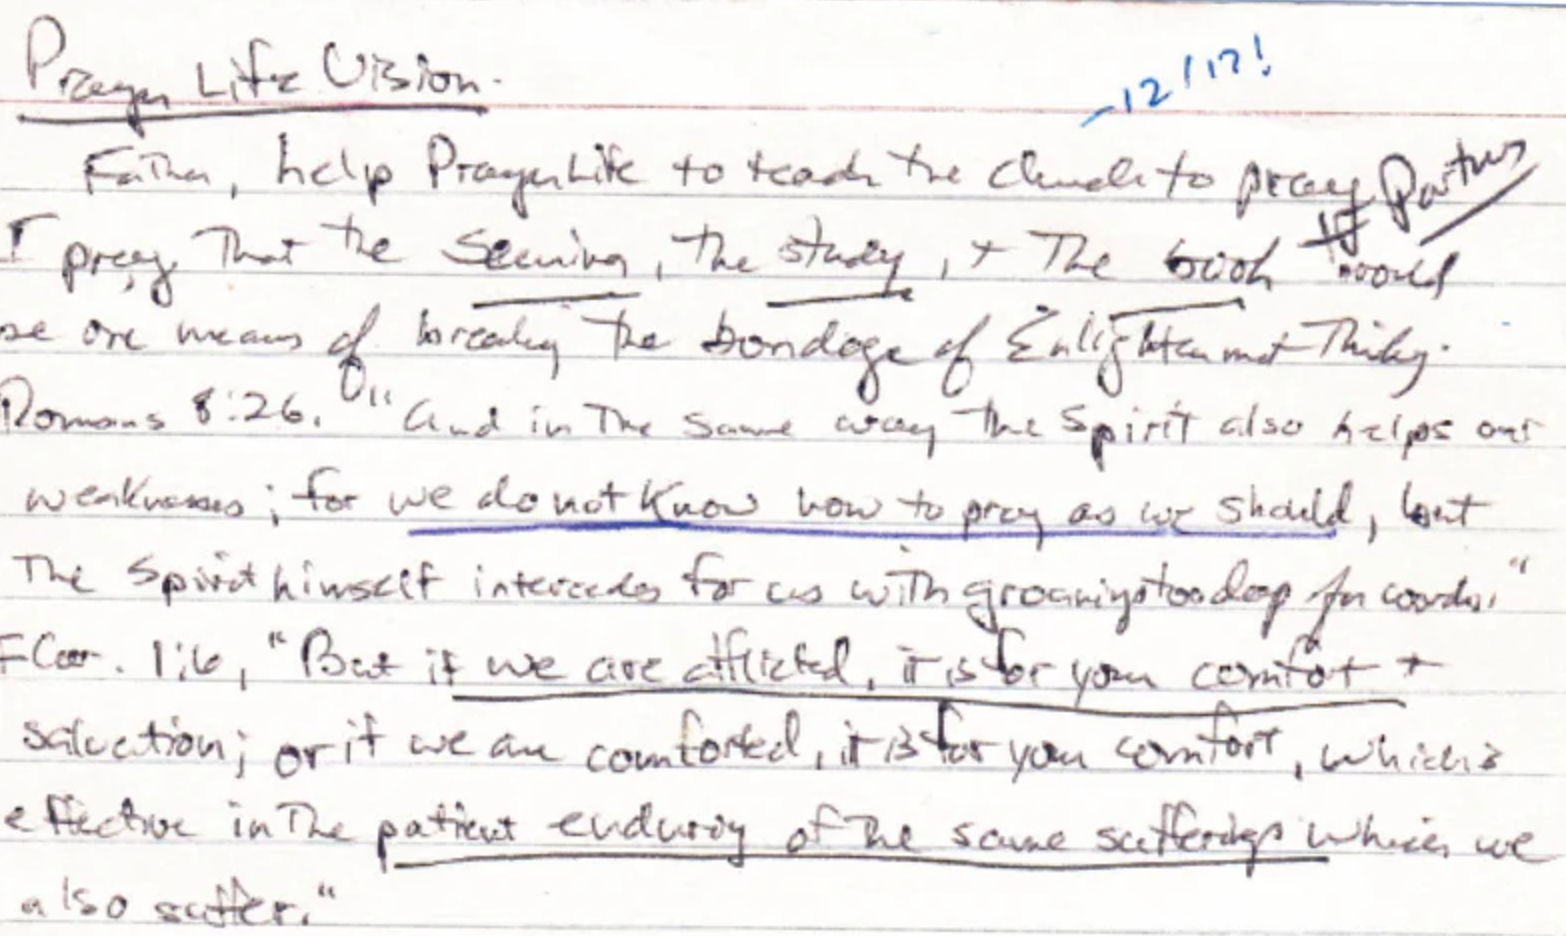 Prayer Life Vision.
-12/17!
Father, help PrayerLife to teach the church to pray
Partners
I pray that the Seminar, the study, + the book would
be one means of breaking the bondage of Enlightenment Thinking.
Romans 8:26. "And in the same way the Spirit also helps our
weaknesses; for we do not know how to pray as we should, but
the Spirit himself intercedes for us with groanings too deep for words."
Cor. 1:6, "But if we are afflicted, it is for your comfort +
salvation; or if we are comforted, it is for your comfort, which is
effective in the patient enduring of the same sufferings which we
also suffer."